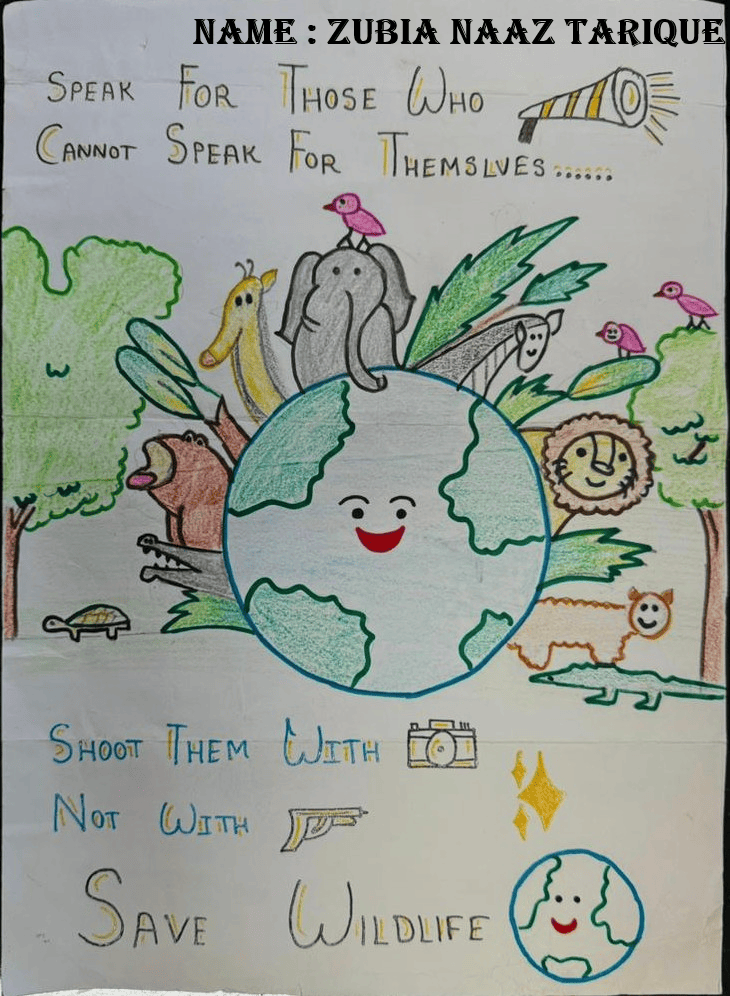 NAME : ZUBIA NAAZ TARIQUE
SPEAK FOR THOSE WHO
CANNOT SPEAK FOR THEMSLVES......
SHOOT THEM WITH
NOT WITH
SAVE WILDLIFE